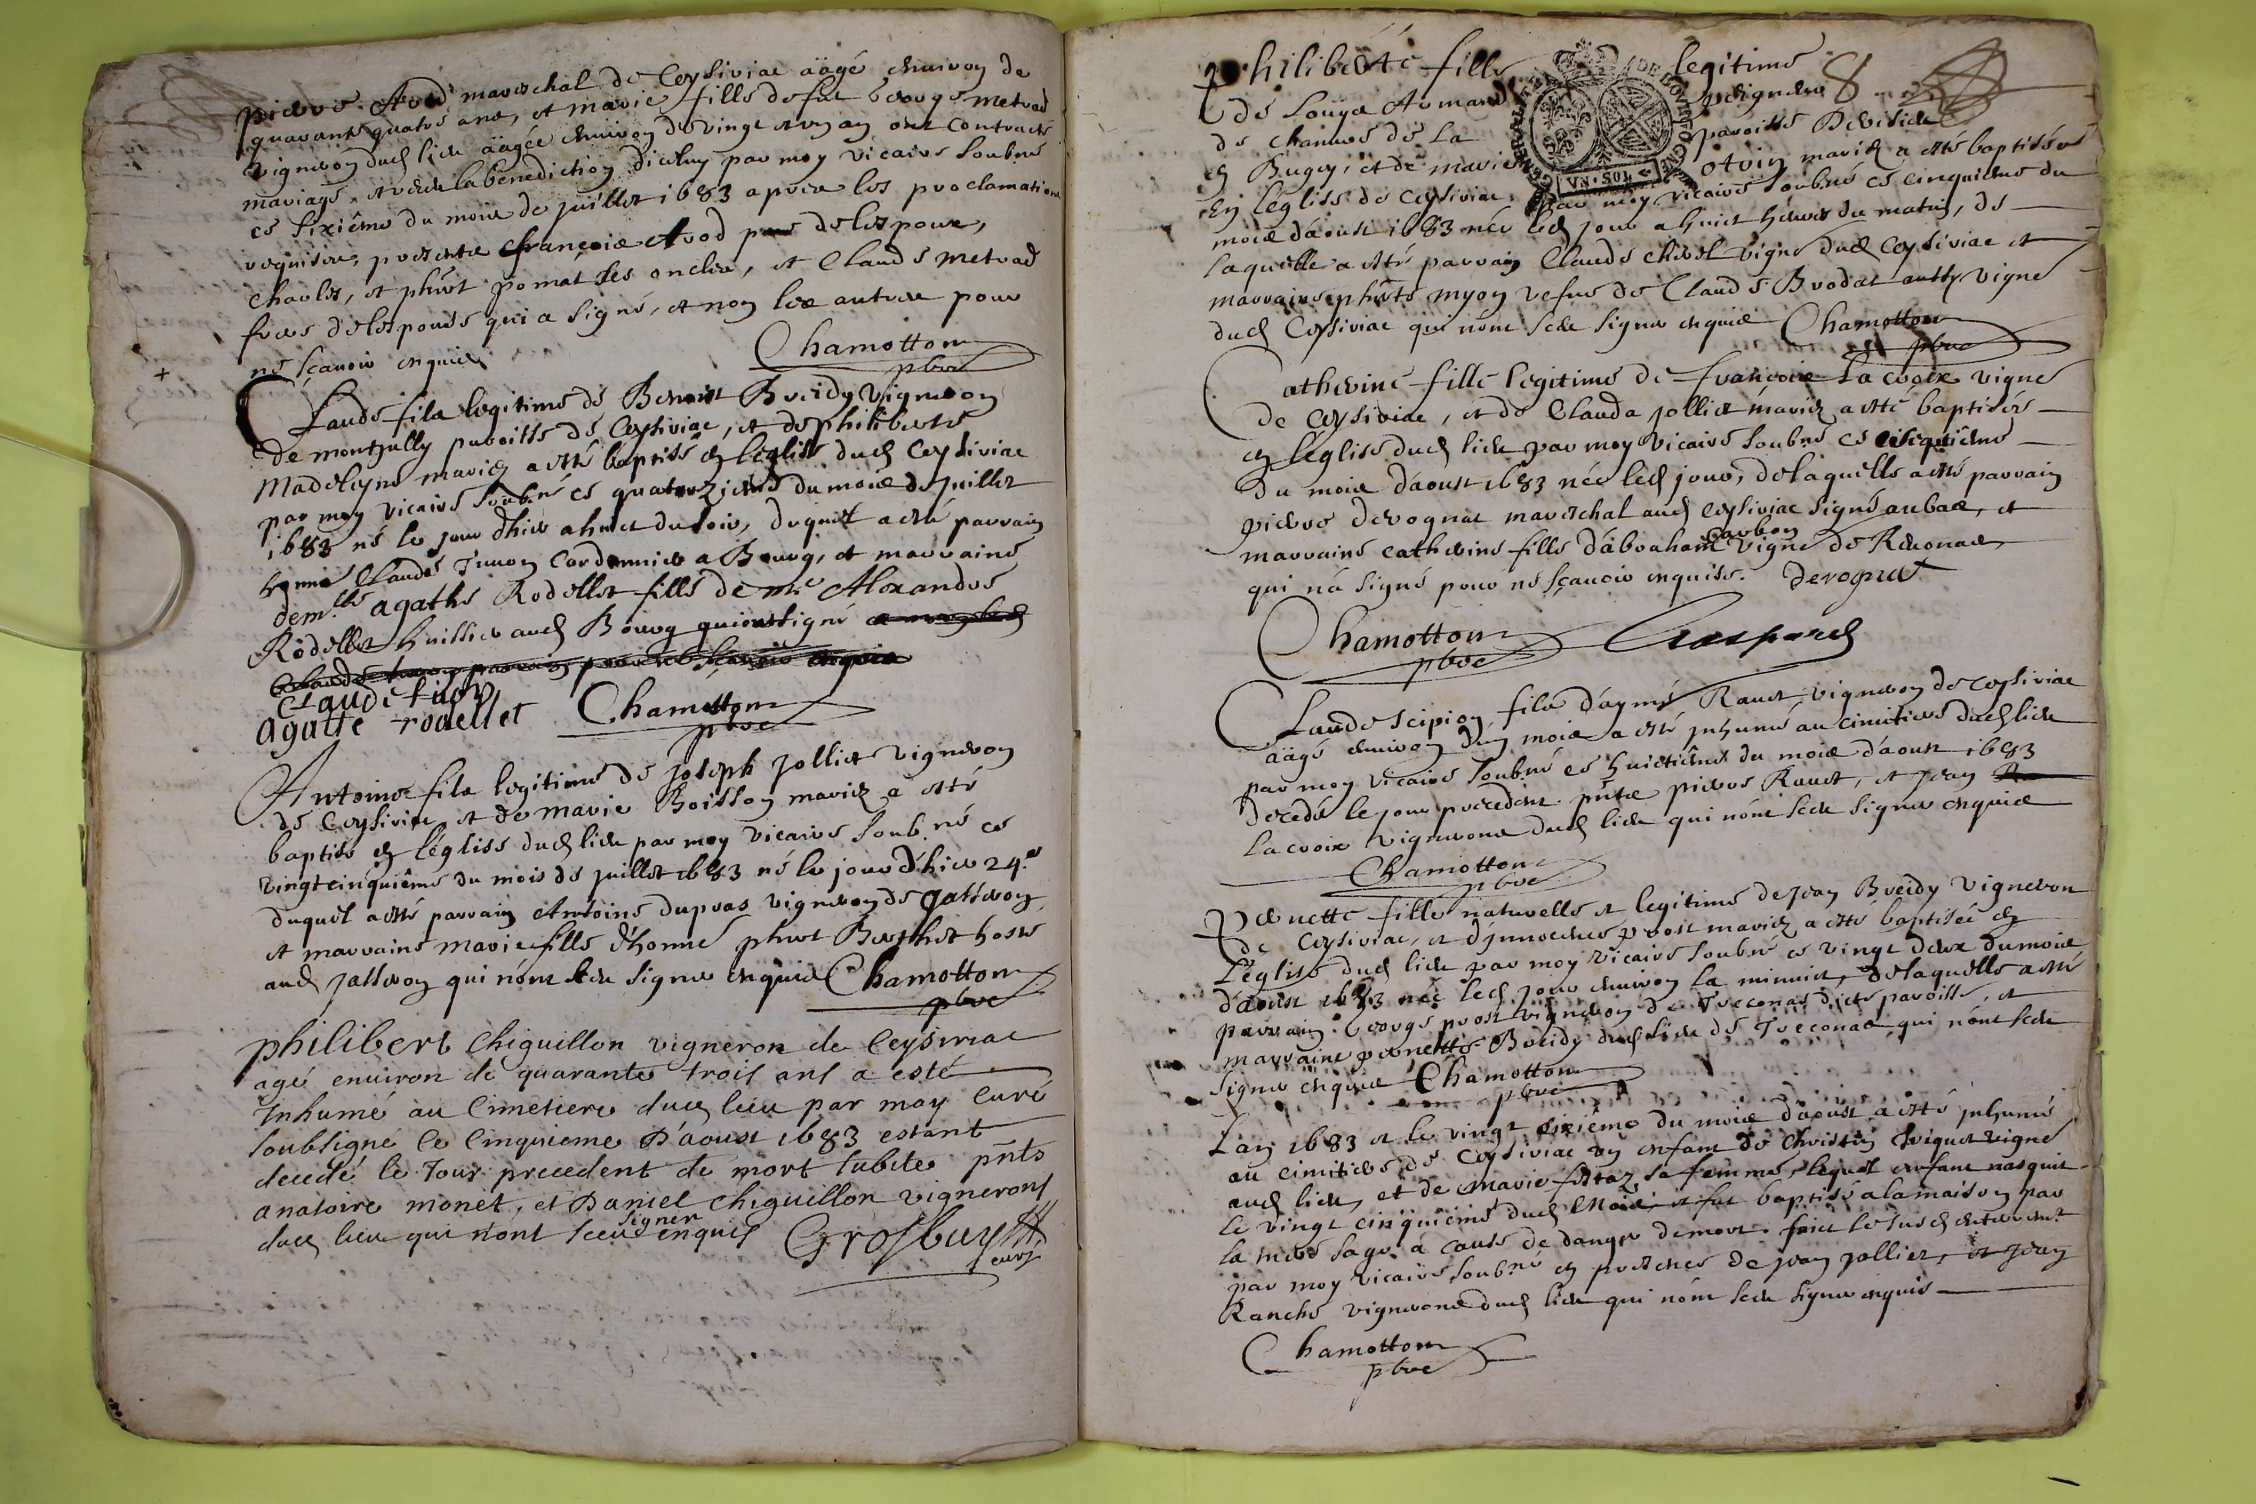 pierre Avod mareschal de Ceysiriac âägé environ de
quarante quatre ans, et marie fille de fut george metrad
vigneron dud lieu âägée environ de vingt et un an ont contracté
mariage, et receu la benediction d'iceluy par moy vicaire soubné
ce sixiême du mois de juillet 1683 apres les proclamations
requises, presents françois Avod de lespoux,
Charles, et phert pomat ses oncles, et Claude metrad
frere de lespouse qui a signé, et non les autres pour
ne sçavoir enquis
Chamotton
pbre
Claude fils legitime de Benoist Breidy vigneron
de montjully paroisse de Ceysiriac, et de philiberte
Madeleyne mariez a esté baptisé en l'eglise dud Ceysiriac
par moy vicaire soubné ce quatorziême du mois de juillet
1683 né le jour d'hier a huict du soir, duquel a esté parrain
honné Claude Tinon Cordonnier a Bourg, et marraine
demlle agathe Rodellet fille de me Alexandre
Rodellet huissier aud Bourg qui ont signé
Claude tinon
agatte rodellet Chamotton
pbre
Antoine fils legitime de joseph jollier vigneron
de Ceysiriac et de marie Boisson mariez a esté
baptisé en l'église dud lieu par moy vicaire soub.né ce
vingtcinquiême du mois de juillet 1683 né le jour d'hier 24.e
duquel a esté parrain Antoine dupras vigneron de jasseron
et marraine marie fille d'honné phert Berthet hoste
aud jasseron qui n'ont sceu signer enquis Chamotton
pbre
philibert Chiguillon vigneron de Ceysiriac
agé environ de quarante trois ans a esté
Inhumé au Cimetiere dud lieu par moy Curé
soubsigné ce Cinquieme D'aoust 1683 estant
decedé le Jour precedent de mort subite pnts
anatoire monet, et Daniel Chiguillon vignerons
dud lieu qui n'ont sceu signer enquis Grosbuy
curé
philiberte fille legitime 8
de Louys Armand peigneur
de chanvre de La paroisse
en Bugey, et de marie mariez a esté baptisée
en l'eglise de Ceysiriac par moy vicaire soubné ce cinquieme du
mois d'aoust 1683 née led jour a huict heures du matin, de
laquelle a esté parrain Claude chevel vigne dud Ceysiriac et
marraine pherte myon vefve de Claude Brodat aussy vigne
dud Ceysiriac qui n'ont sceu signer enquis Chamotton
pbre
Catherine fille legitime de françois Lacroix vigne
de Ceysiriac, et de Clauda jollier mariez a esté baptisée
en l'église dud lieu par moy vicaire soubné ce cinquiême
du mois d'aoust 1683 née led jour, de laquelle a esté parrain
pierre derognat mareschal aud Ceysiriac signé aubas, et
marraine catherine fille d'abraham Carbon vigne de Revonas,
qui n'a signé pour ne sçavoir enquise. derognat
Chamotton
pbre
Claude scipion fils d'aymé Ravet vigneron de ceysiriac
âägé environ d'un mois a esté inhumé au cimitiere dud lieu
par moy vicaire soubné ce huictiême du mois d'aoust 1683
decedé le jour precedent. pnts pierre Ravet, et jean
Lacroix vignerons dud lieu qui n'ont sceu signer enquis
Chamotton
pbre
Pernette fille naturelle et legitime de jean Breidy vigneron
de Ceysiriac, et d'jnnocence prost mariez a esté baptisée en
L'église dud lieu par moy vicaire soubné ce vingt deux du mois
d'aoust 1683 née led jour environ la minuict, de laquelle a esté
parrain George prost vigneron de Treconas dicte paroisse, et
marraine pernette Breidy dud lieu de Treconas qui n'ont sceu
signer enquis Chamotton
pbre
L'an 1683 et le vingt sixiême du mois d'aoust a esté inhumé
au cimitiere de Ceysiriac un enfant de Christin vigne
aud lieu, et de marie sa femme, lequel enfant nasquit
le vingt cinquiême dud mois, et fut baptisé a la maison par
la mere sage a cause de danger de mort. faict le susd enterremt
par moy vicaire soub.né en presence de jean jollier, et jean
Ranche vignerons dud lieu qui n'ont sceu signer enquis
Chamotton
pbre